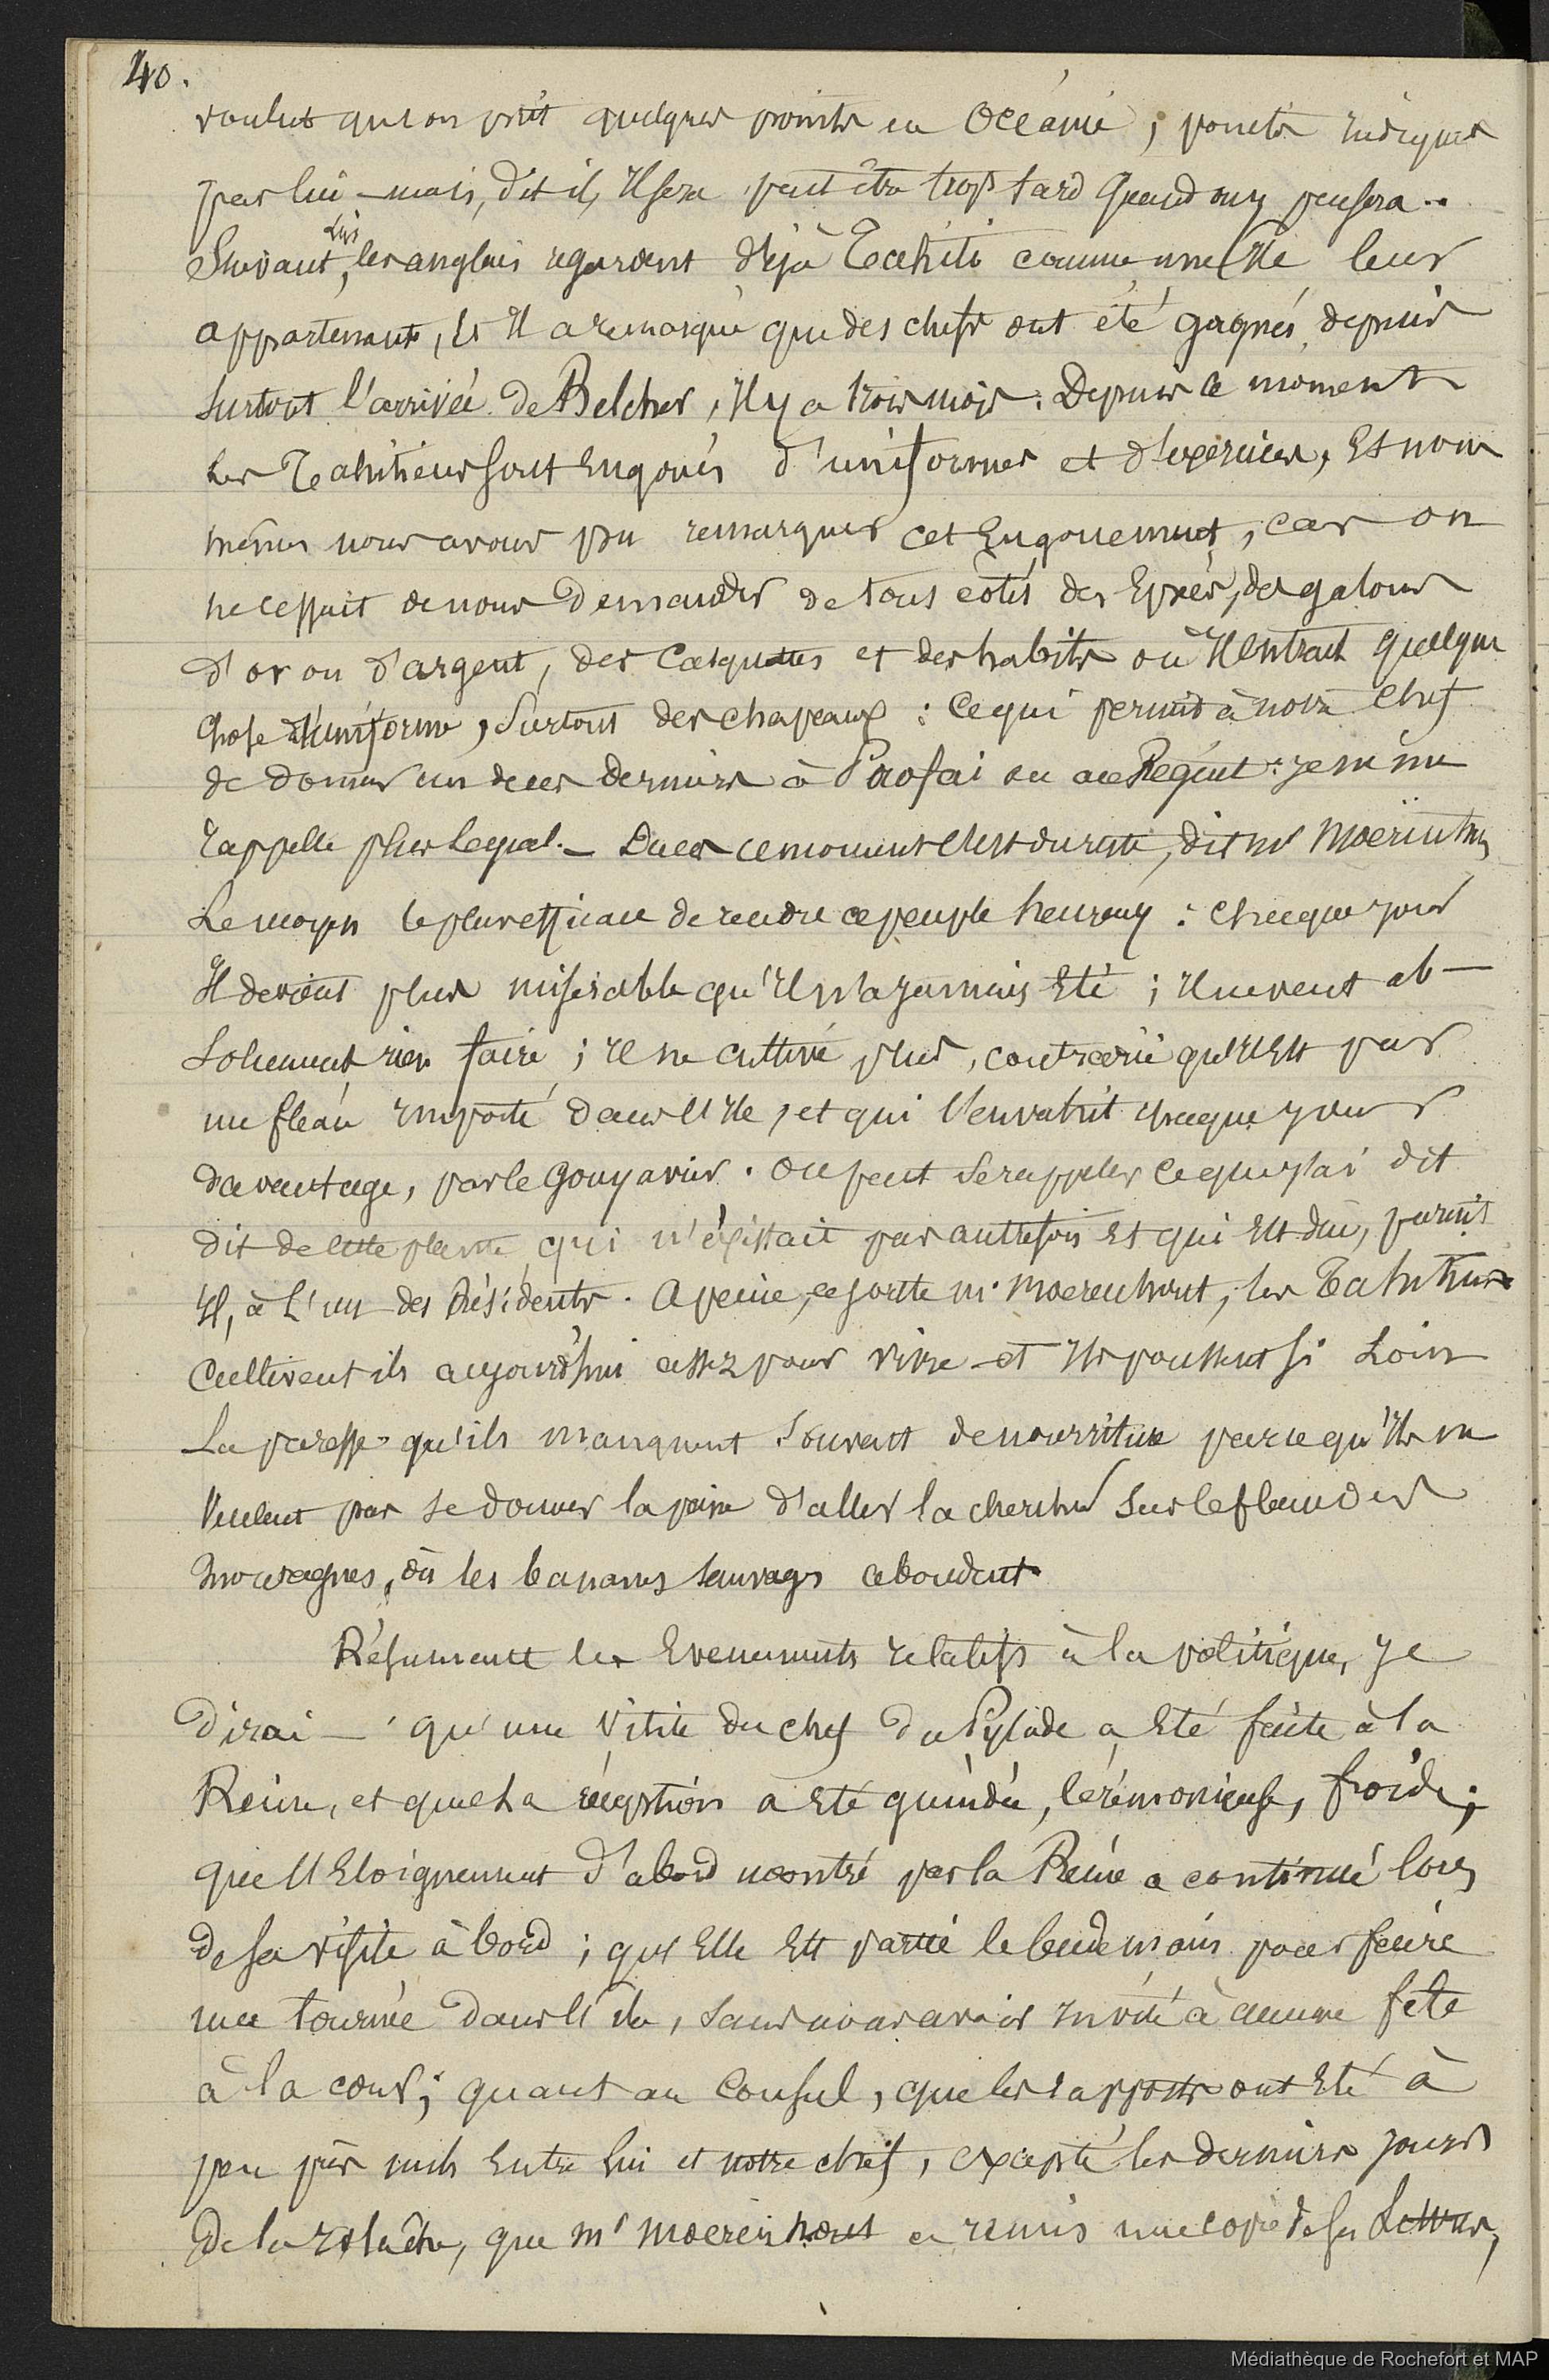 40.
voulut qu'on prit quelques points en Océanie ; points indiqués
par lui - mais, dit il, il sera peut être trop tard quand on y pensera ..
Suivant lui, les anglais regardent déjà Taehiti comme une île leur
appartenant, et il a remarqué que des chefs ont été gagnés, depuis
surtout l'arrivée de Belcher, il y a trois mois. Depuis ce moment
les Tahitiens sont engoués d'uniformes et d'exercices, et nous
mêmes nous avons pu remarquer cet engouement, car on
ne cessait de nous demander de tous côtés des Epées, des galons
d'or ou d'argent, des casquettes et des habits où il entrait quelque
chose d'uniforme, surtout des chapeaux : ce qui permit à notre chef
de donner un de ces derniers à Paofai ou au Régent : je ne me
rappelle plus lequel. - Dans ce moment c'est, dit mr Moërinhout,
Le moyen le plus efficace de rendre ce peuple heureux : chaque jour
Il devient plus misérable qu'il n'a jamais été ; il ne veut ab-
solument rien faire ; il ne cultive plus, contrarié qu'il est par
un fléau importé dans l'île, et qui l'envahit chaque jour
davantage, par le Gouyavier. On peut se rappeler ce que j'ai dit
dit de cette plante qui n'éxistait pas auttefois et qui est due, parait
il, à l'un des Résidents. A peine, ajoute mr Moerenhout, les Tahitiens
cultivent ils aujourd'hui assez pour vivre et ils poussent si loin
La paresse qu'ils manquent souvent de nourriture parce qu'ils ne
veulent pas se donner la peine d'aller la chercher sur le flanc des
montagnes, où les bananes sauvages abondent.
Résumant les Evenements relatifs à la politique, je
dirai - qu'une visite du chef du Pylade a été faite à la
Reine, et que la réception a été guindée, cérémonieuse, froide ;
que l'Eloignement d'abord montré par la Reine a continué lors
de sa visite à bord ; qu'elle est partie le lendemain pour faire
une tournée dans l'île, sans nous avoir invité à aucune fete
à la cour ; quant au Consul, que les rapports ont été à
peu près nuls entre lui et notre chef, excepté les derniers jours
de la relâche, que mr Moerenhout a remis une copie de ses Lettres,
Médiathèque de Rochefort et MAP